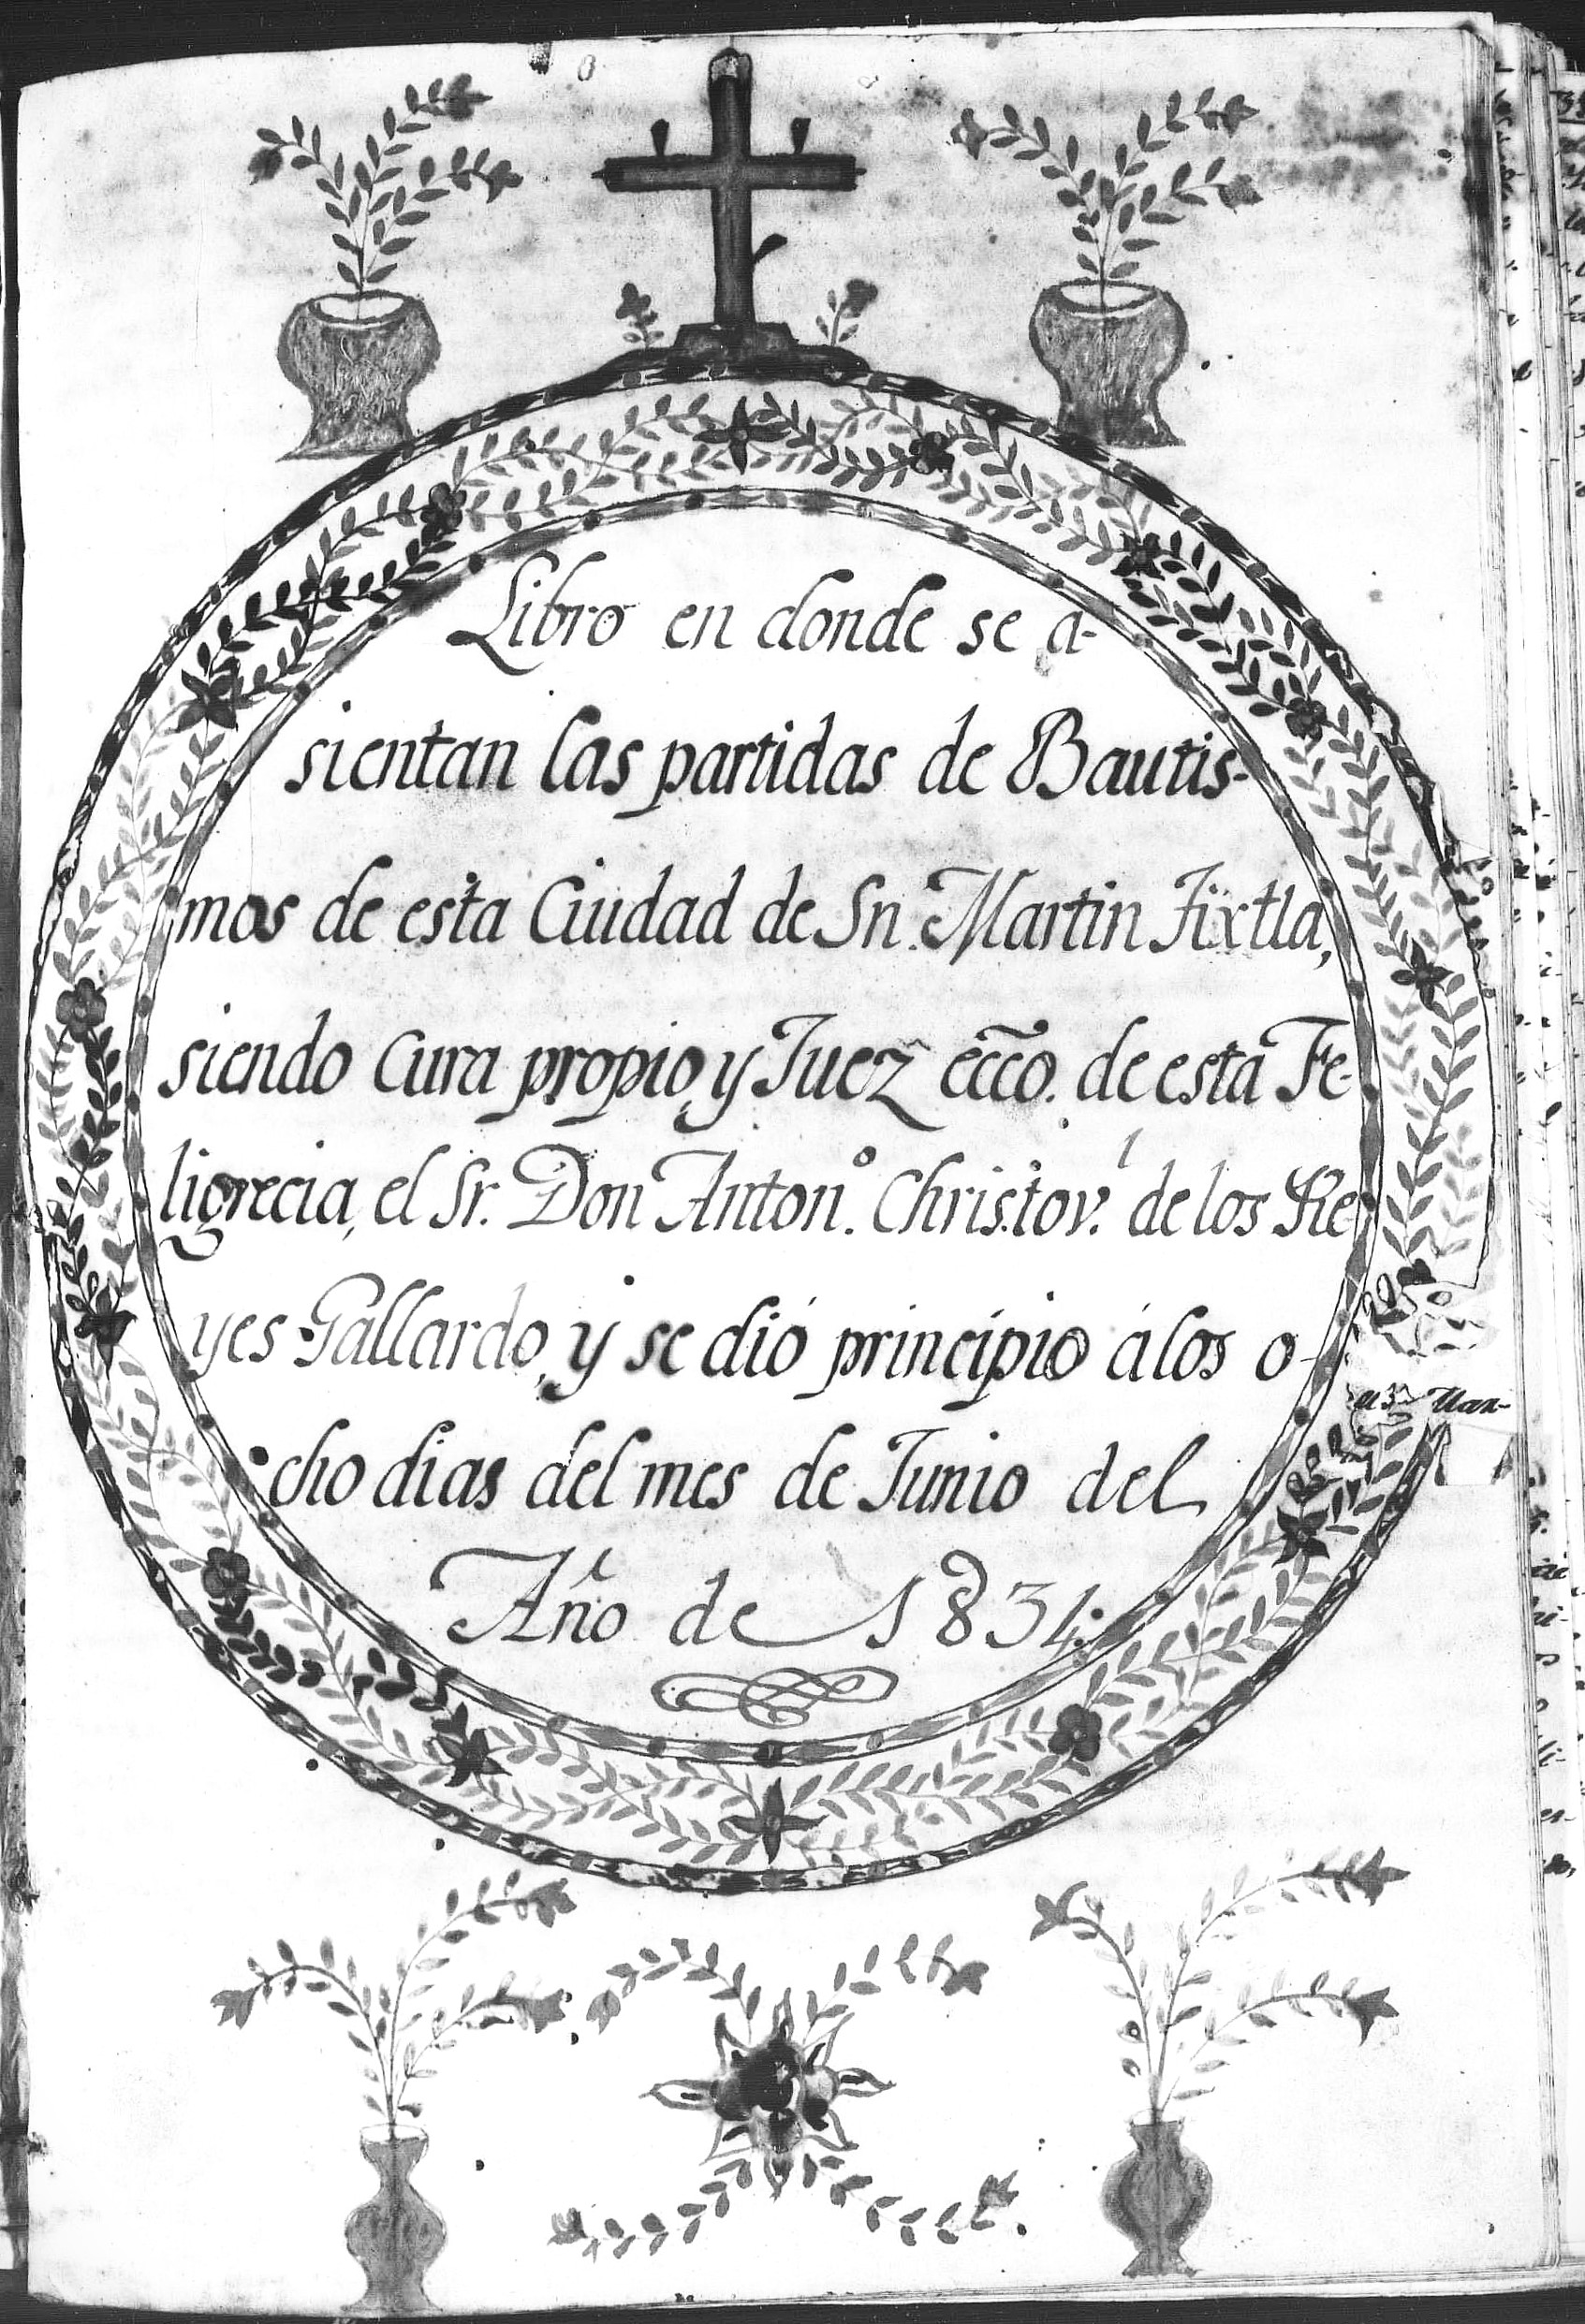 Libro en donde se a-
sientan las partidas de Bautis-
mos de esta Ciudad de Sn. Martin Tixtla,
siendo Cura propio, y Juez ecco. de esta Fe-
ligrecia, el Sr. Don Anton.º Christov.l de los Re-
yes Gallardo, y se dió principio á los o-
cho dias del mes de Junio del
Año de 1834.